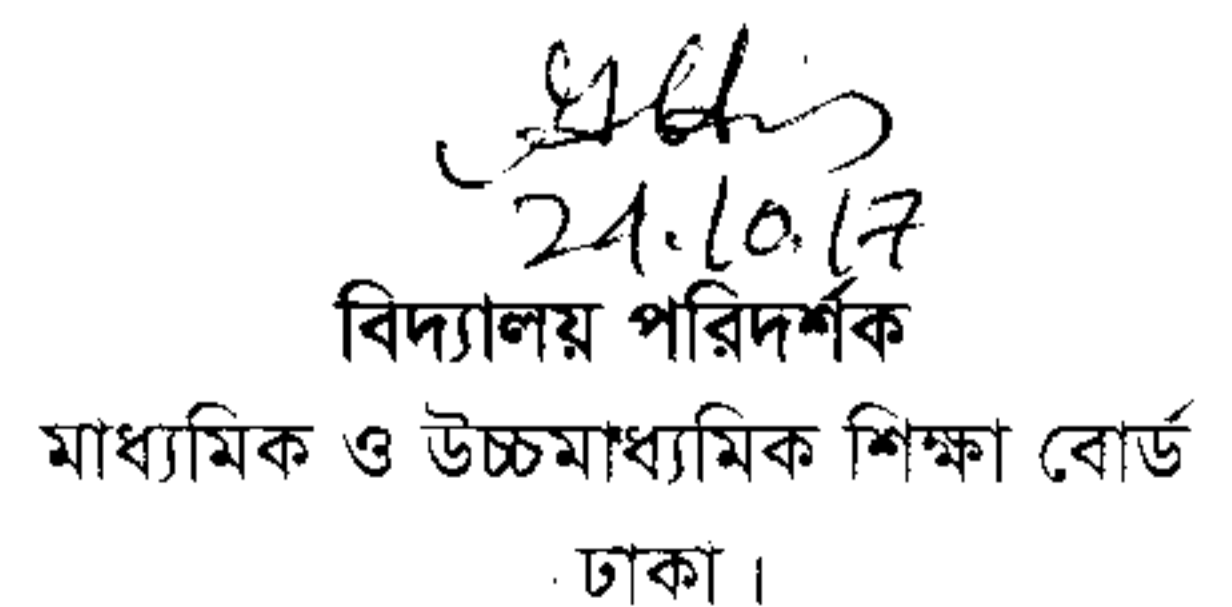 24.10.17
বিদ্যালয় পরিদর্শক
মাধ্যমিক ও উচ্চমাধ্যমিক শিক্ষা বোর্ড
ঢাকা।